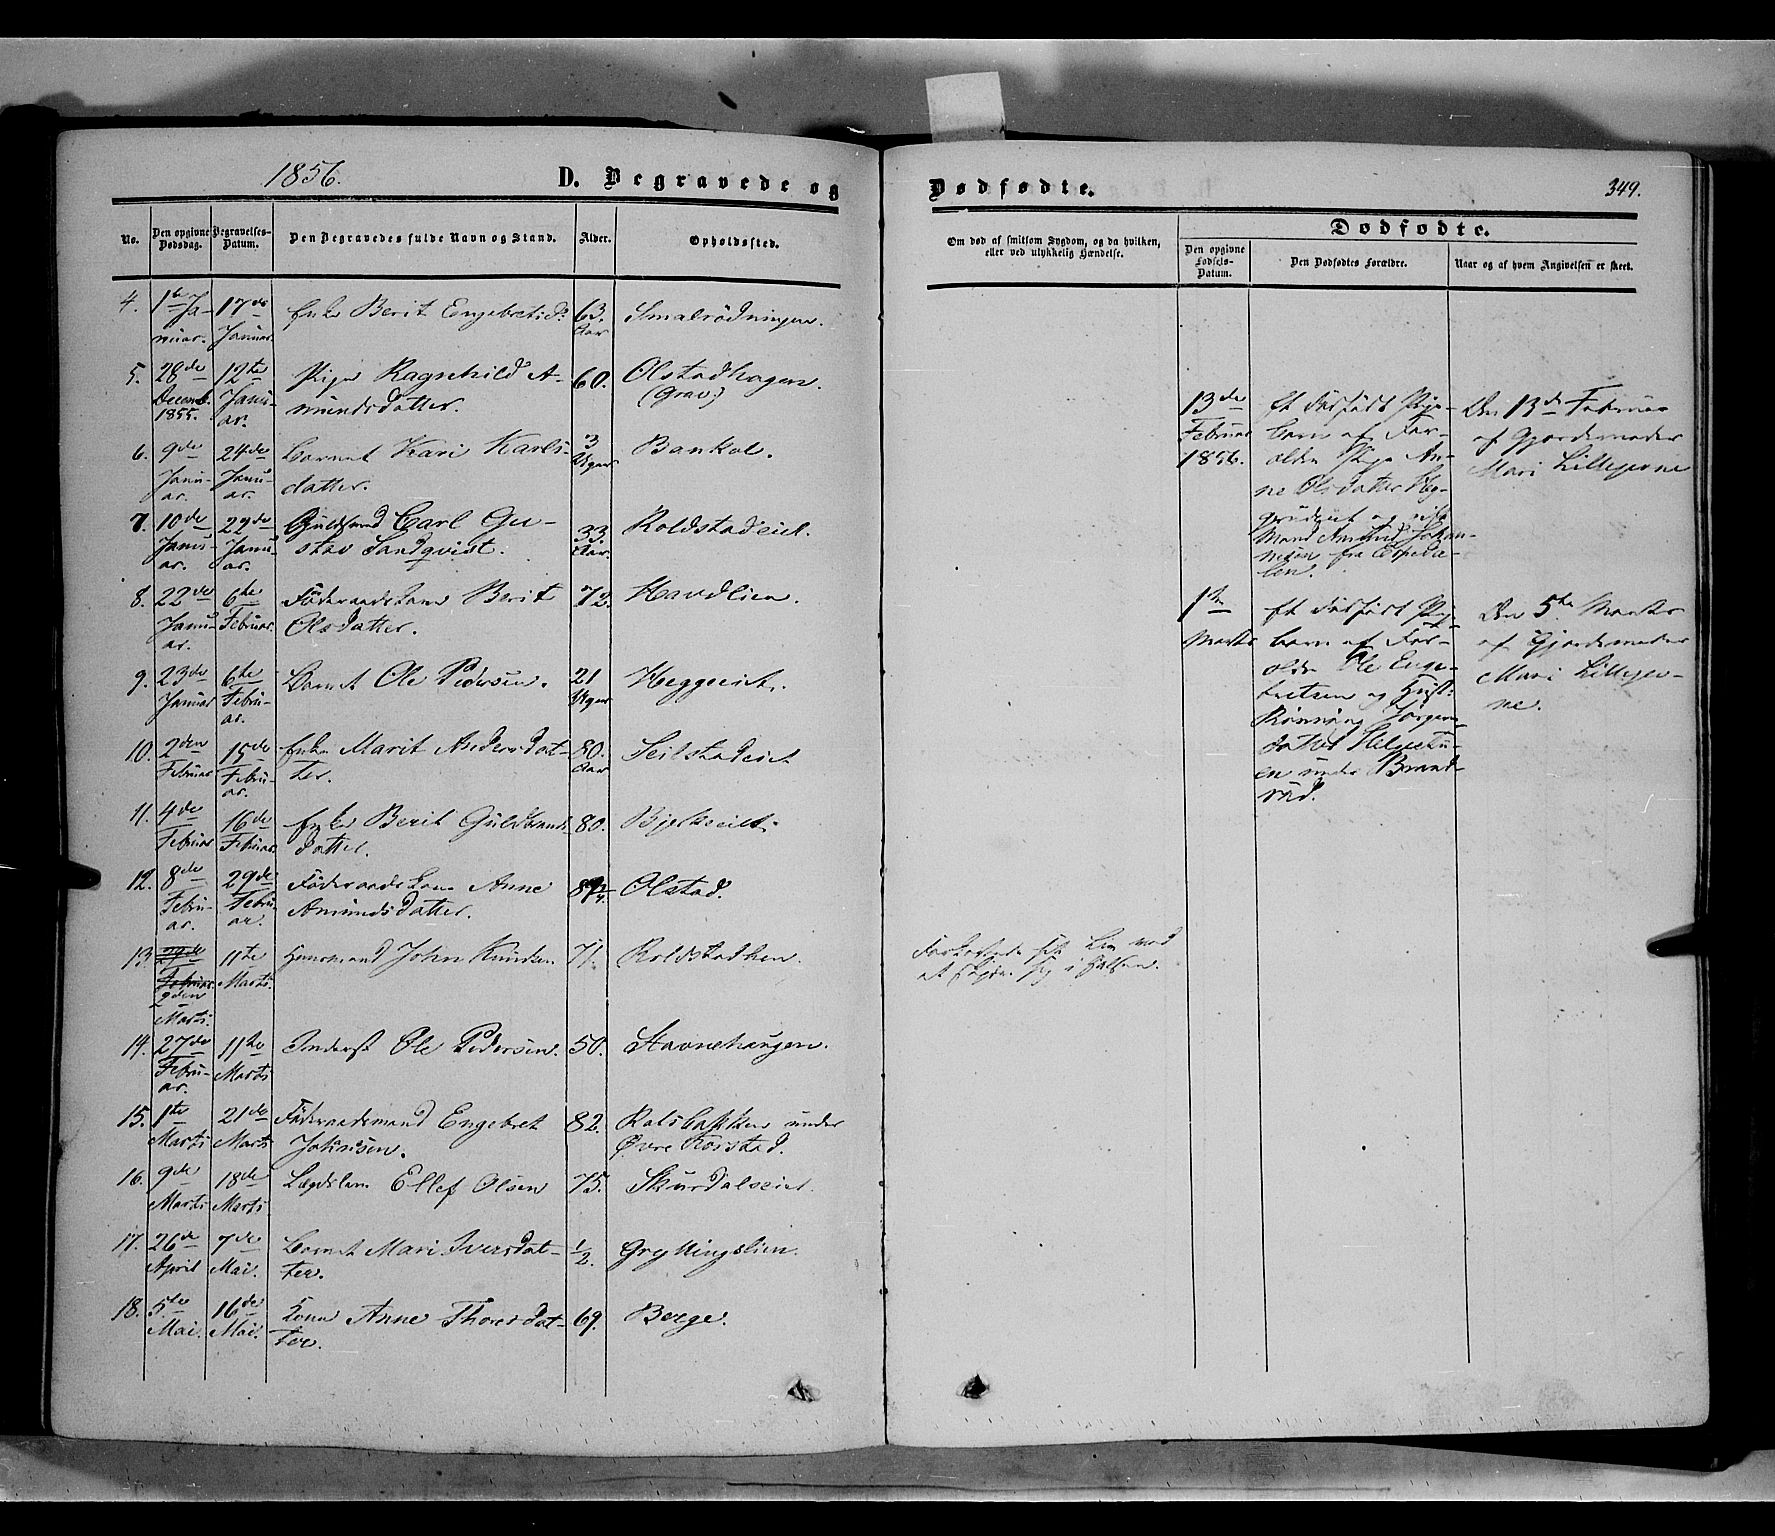 1856.
D. Begravede og
No.
Den opgivne Dødsdag.
Begravelses-Datum.
Den Begravedes fulde Navn og Stand.
Alder.
Opholdssted.
4. 1te Januar. 17de Januar. Enke Berit Engebretsd: 63. Aar Smalrödningen.
5. 28de Decemb. 1855. 12te Januar. Pige Ragnhild Amundsdatter. 60. Olstadhagen. (Grav:)
6. 9de Januar. 24de Januar. Barnet Kari Karlsdatter. 3 Uger Bankol.
7. 10de Januar. 22de Januar. Guldsmed Carl Gustav Sandqvist. 33. Aar. Roldstadeiet.
8. 22de Januar. 6te Februar. Föderaadskone Berit Olsdatter. 72. Havdlien.
9. 23de Januar 6te Februar. Barnet Ole Pedersen. 21 Uger Heggeeiet.
10. 2den Februar 15de Februar. Enke Marit Andersdatter. 80. Aar Seilstadeiet
11. 4de Februar 16de Februar. Enke Berit Guldbrandsdatter. 80. Bjerkeeiet.
12. 8de Februar. 29de Februar. Föderaadskone Anne Amundsdatter. Olstad.
13. 29de Februar. 2den Marts. 11te Marts. Huusmand John Knudsen 71. Roldstadhen.
14. 27de Februar. 11te Marts Inderst Ole Pedersen. 50. Stavnehaugen.
15. 1te Marts 21de Marts Föderaadsmand Engebret Johnsen. 82. Kalsbakken under Øvre Korstad.
16. 9de Marts 18de Marts. Lægdslem Ellef Olsen 75. Skurdalseiet.
17. 26de April 7de Mai. Barnet Mari Iversdatter. 1/2. Gryttingslien.
18. 5te Mai. 16de Mai. Kone Anne Thoresdatter. 69. Berge.
Dødfødte.
349.
Om død af smitsom Sygdom, og da hvilken,
eller ved ulykkelig Hændelse.
Dødfødte.
Den opgivne Fødsels-Datum.
Den Dødfødtes Forældre.
Naar og af hvem Angivelsen er skeet.
Forkortede sit Liv ved
at skjære sig i Halsen.
13de Februar 1856.
Et dödfödt Pige-
barn af For-
ældre Pige An-
ne Olsdatter Heg-
geeiet og
Mand Amund Johan-
nesen fra Espeda-
len.
Den 13de Februar
af Gjordemoder
Mari Lillejevne
1te Marts
Et dödfödt Pige-
barn af For-
ældre Ole Enge-
bretsen og Hust:
Rønnaug Jørgens-
datter
en under Brand-
vol.
Den 5te Marts
af Gjordemoder
Mari Lillejev-
ne.